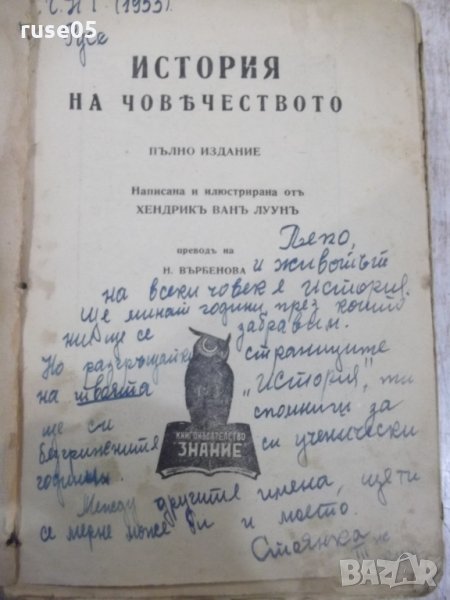 ruse05
(1933)
Русе
ИСТОРИЯ
НА ЧОВѢЧЕСТВОТО
ПЪЛНО ИЗДАНИЕ
Написана и илюстрирана отъ
ХЕНДРИКЪ ВАНЪ ЛУУНЪ
преводъ на
Н. ВЪРБЕНОВА
и животът
на всеки човек е история.
Ще минат години през които
ние ще се забравим.
Но разгръщайки страниците
на твоята "История", ти
ще си спомниш за
безгрижните си ученически
години.
Между другите имена, ще ти
се мерне може би и моето.
Стоянка
III
КНИГОИЗДАТЕЛСТВО
"ЗНАНИЕ"
bazar